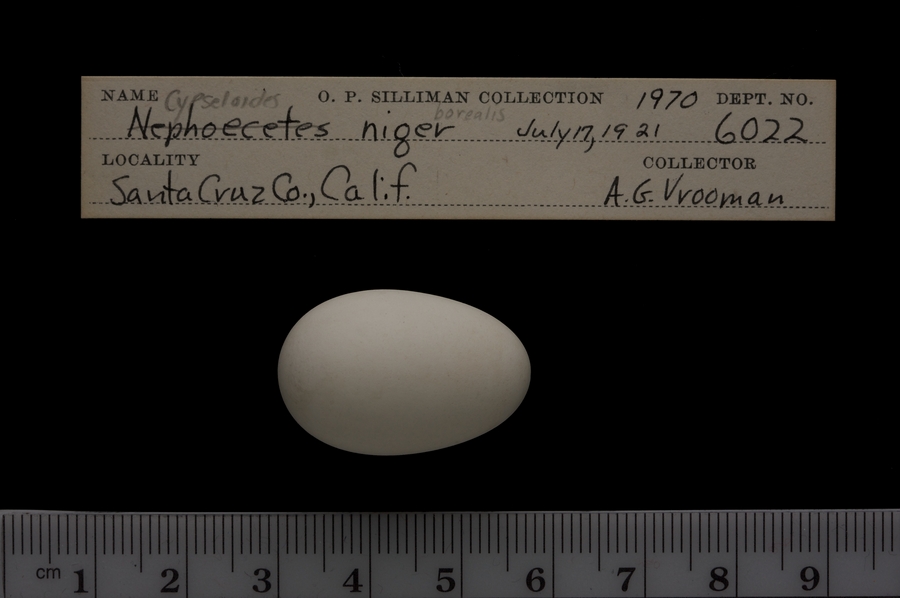 NAME Cypseloides O. P. SILLIMAN COLLECTION 1970 DEPT. NO.
borealis
Nephoecetes niger July 17, 1921 6022
LOCALITY COLLECTOR
Santa Cruz Co., Calif. A. G. Vrooman
cm 1 2 3 4 5 6 7 8 9